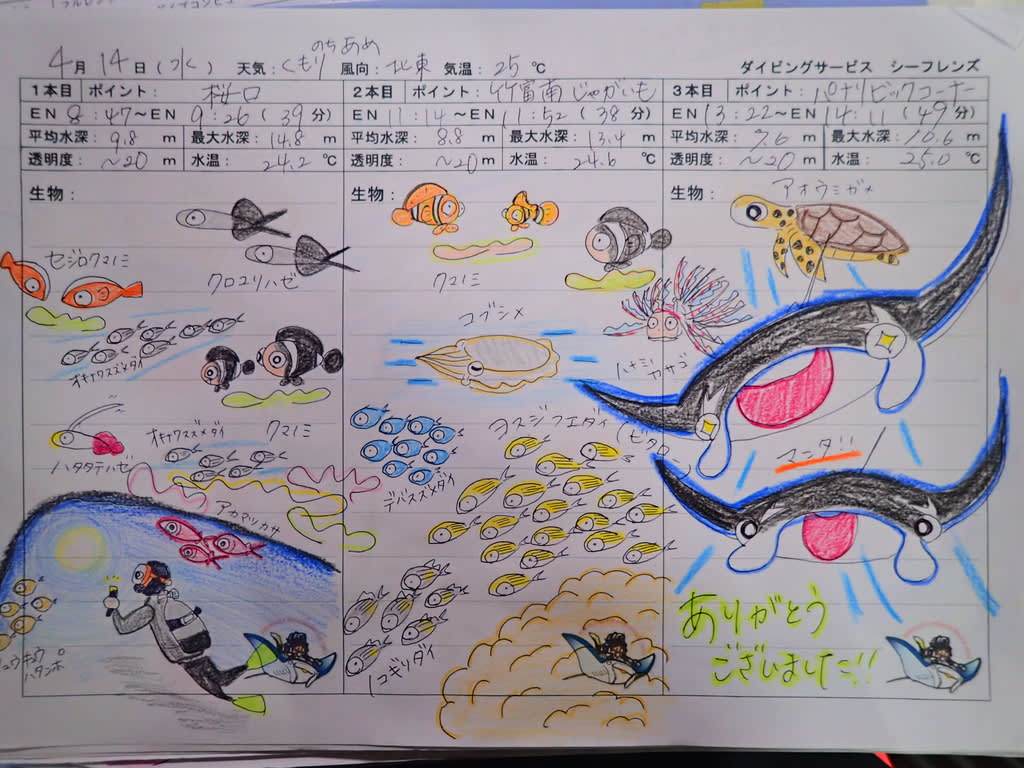 のちあめ
4月 14日(水) 天気:くもり 風向:北東 気温:25℃ ダイビングサービス シーフレンズ
1本目 ポイント: 桜口
EN 8:47~EN 9:26(39分)
平均水深:9.8m 最大水深:14.8m
透明度:~20m 水温:24.2℃
生物:
クロユリハゼ
セジロクマノミ
オキナワスズメダイ
オキナワスズメダイ クマノミ
ハタタテハゼ
アカマツカサ
リュウキュウ
ハタンポ
2本目 ポイント: 竹富南じゃがいも
EN 11:14~EN 11:52(38分)
平均水深:8.8m 最大水深:13.4m
透明度:~20m 水温:24.6℃
生物:
クマノミ
コブシメ
ハナミノ
カサゴ
ヨスジフエダイ
デバスズメダイ
ノコギリダイ
3本目 ポイント: パナリビックコーナー
EN 13:22~EN 14:11(49分)
平均水深:9.6m 最大水深:10.6m
透明度:~20m 水温:25.0℃
生物:
アオウミガメ
マンタ!!
ありがとう
ございました!!